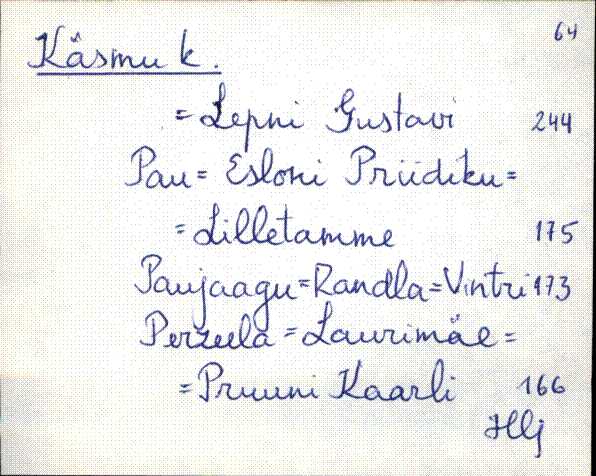 64
Käsmu k.
= Lepni Gustavi 244
Pau = Esloni Priidiku =
= Lilletamme 175
Paujaagu = Randla = Vintri 173
Perzeela = Laurimäe =
= Pruuni Kaarli 166
Hlj